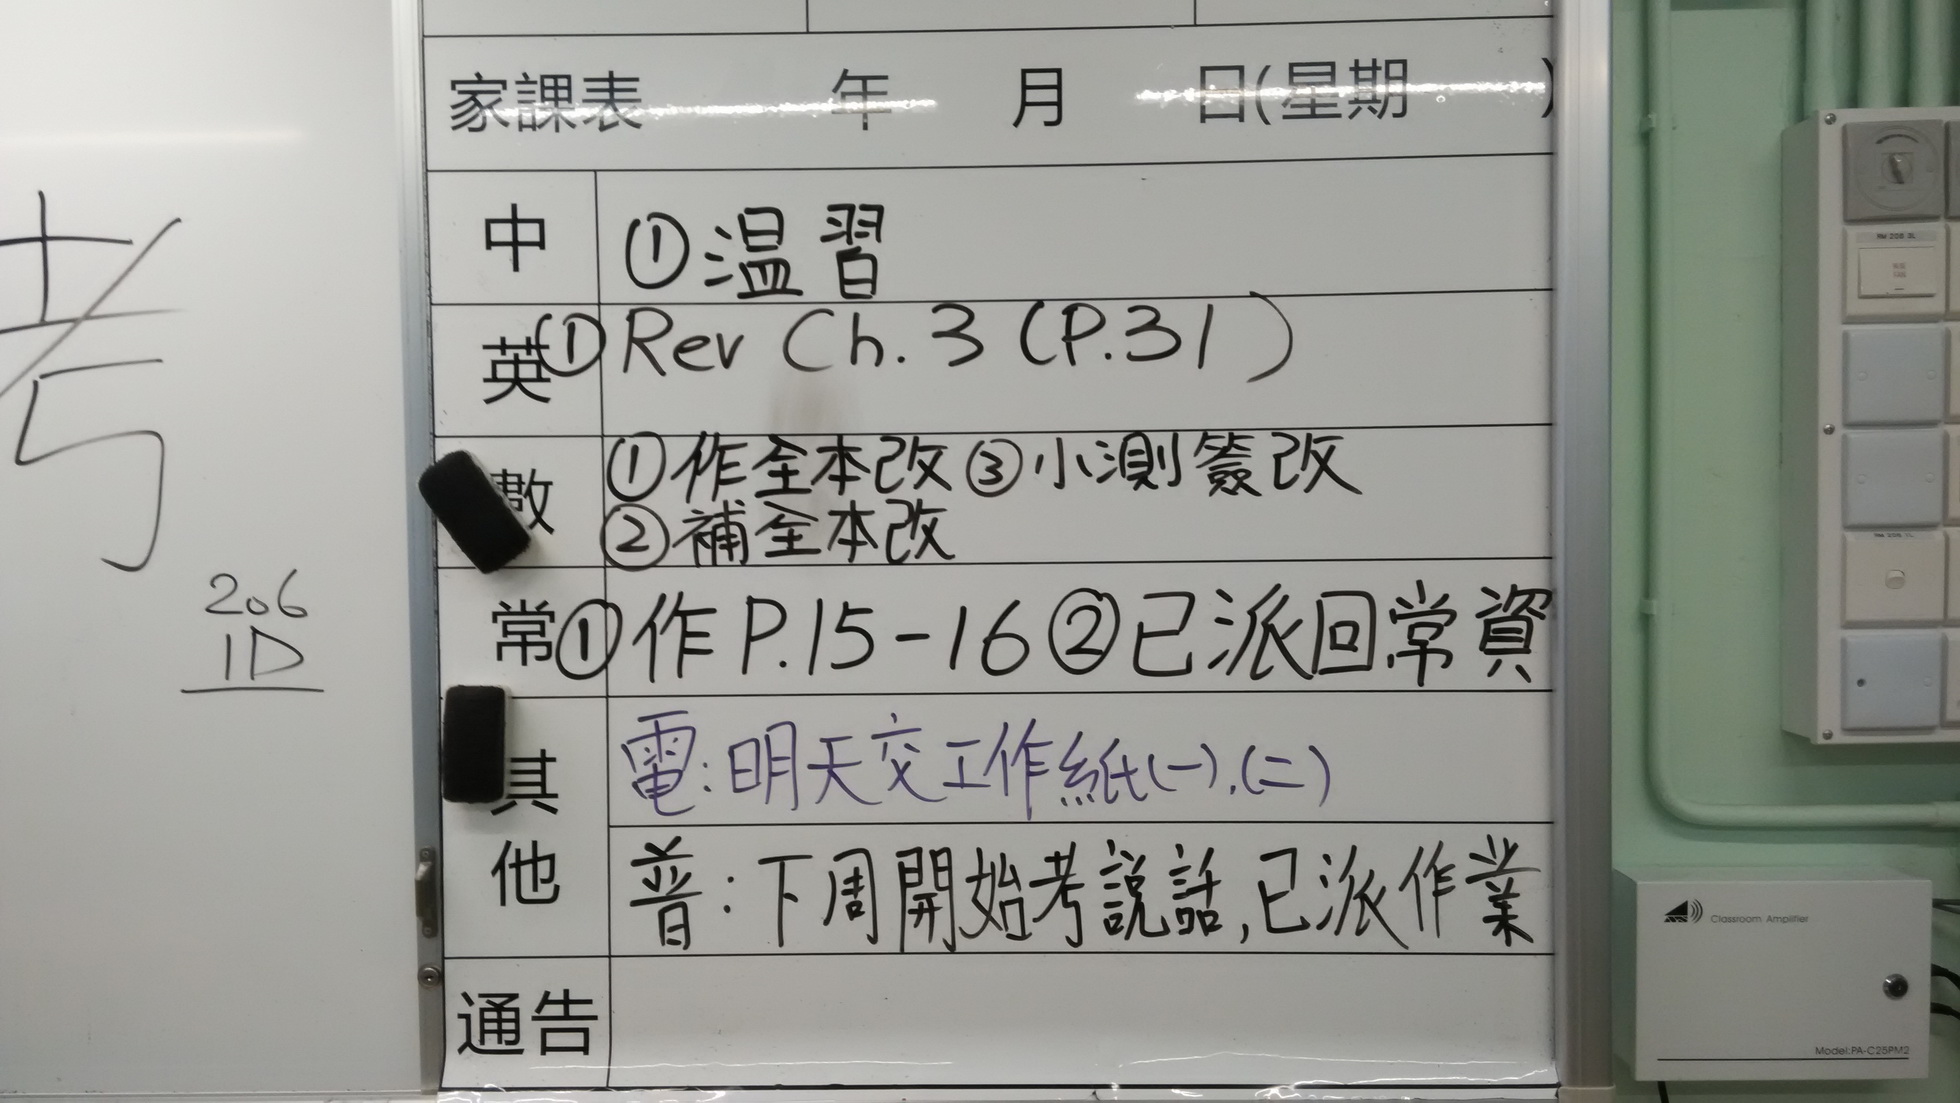 考
206
1D
家課表 年 月 日(星期 )
中 ①温習
英 ①Rev Ch. 3 (P.31)
數 ①作全本改 ③小測簽改
②補全本改
常 ①作 P.15-16 ②已派回常資
其他 電:明天交工作紙(一).(二)
普:下周開始考説話,已派作業
通告
Classroom Amplifier
Model:PA-C25PM2